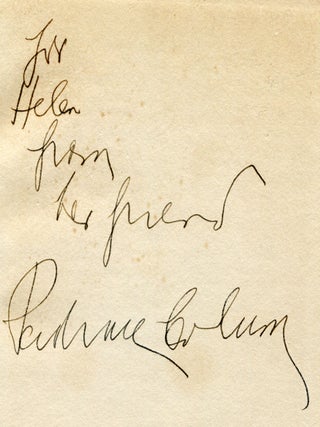 for
Helen
from
her friend
Padraic Colum